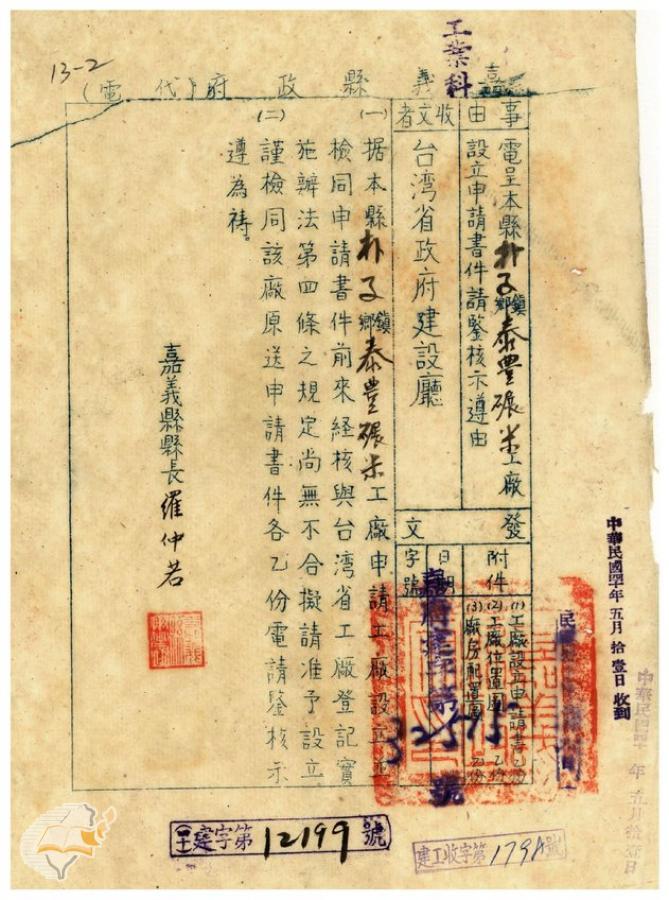 工業科
13-2
嘉義縣政府(代電)
事由
電呈本縣朴子鎮鄉泰豊碾米工廠
設立申請書件請鑒核示遵由
收文者
台湾省政府建設廳
發文
附件
(1)工廠設立申請書乙份
(2)工廠位置圖乙份
(3)廠房配置圖乙份
日期
字號
字第
32575
號
(一)据本縣朴子鎮鄉泰豊碾米工廠申請工廠設立並
檢同申請書件前來経核與台湾省工廠登記實
施辦法第四條之規定尚無不合擬請准予設立
(二)謹檢同該廠原送申請書件各乙份電請鑒核示
遵為禱。
嘉義縣縣長羅仲若
中華民國四十年五月拾壹日收到
中華民國四十年五月拾壹日
建字第12199號
建工收字第179A號